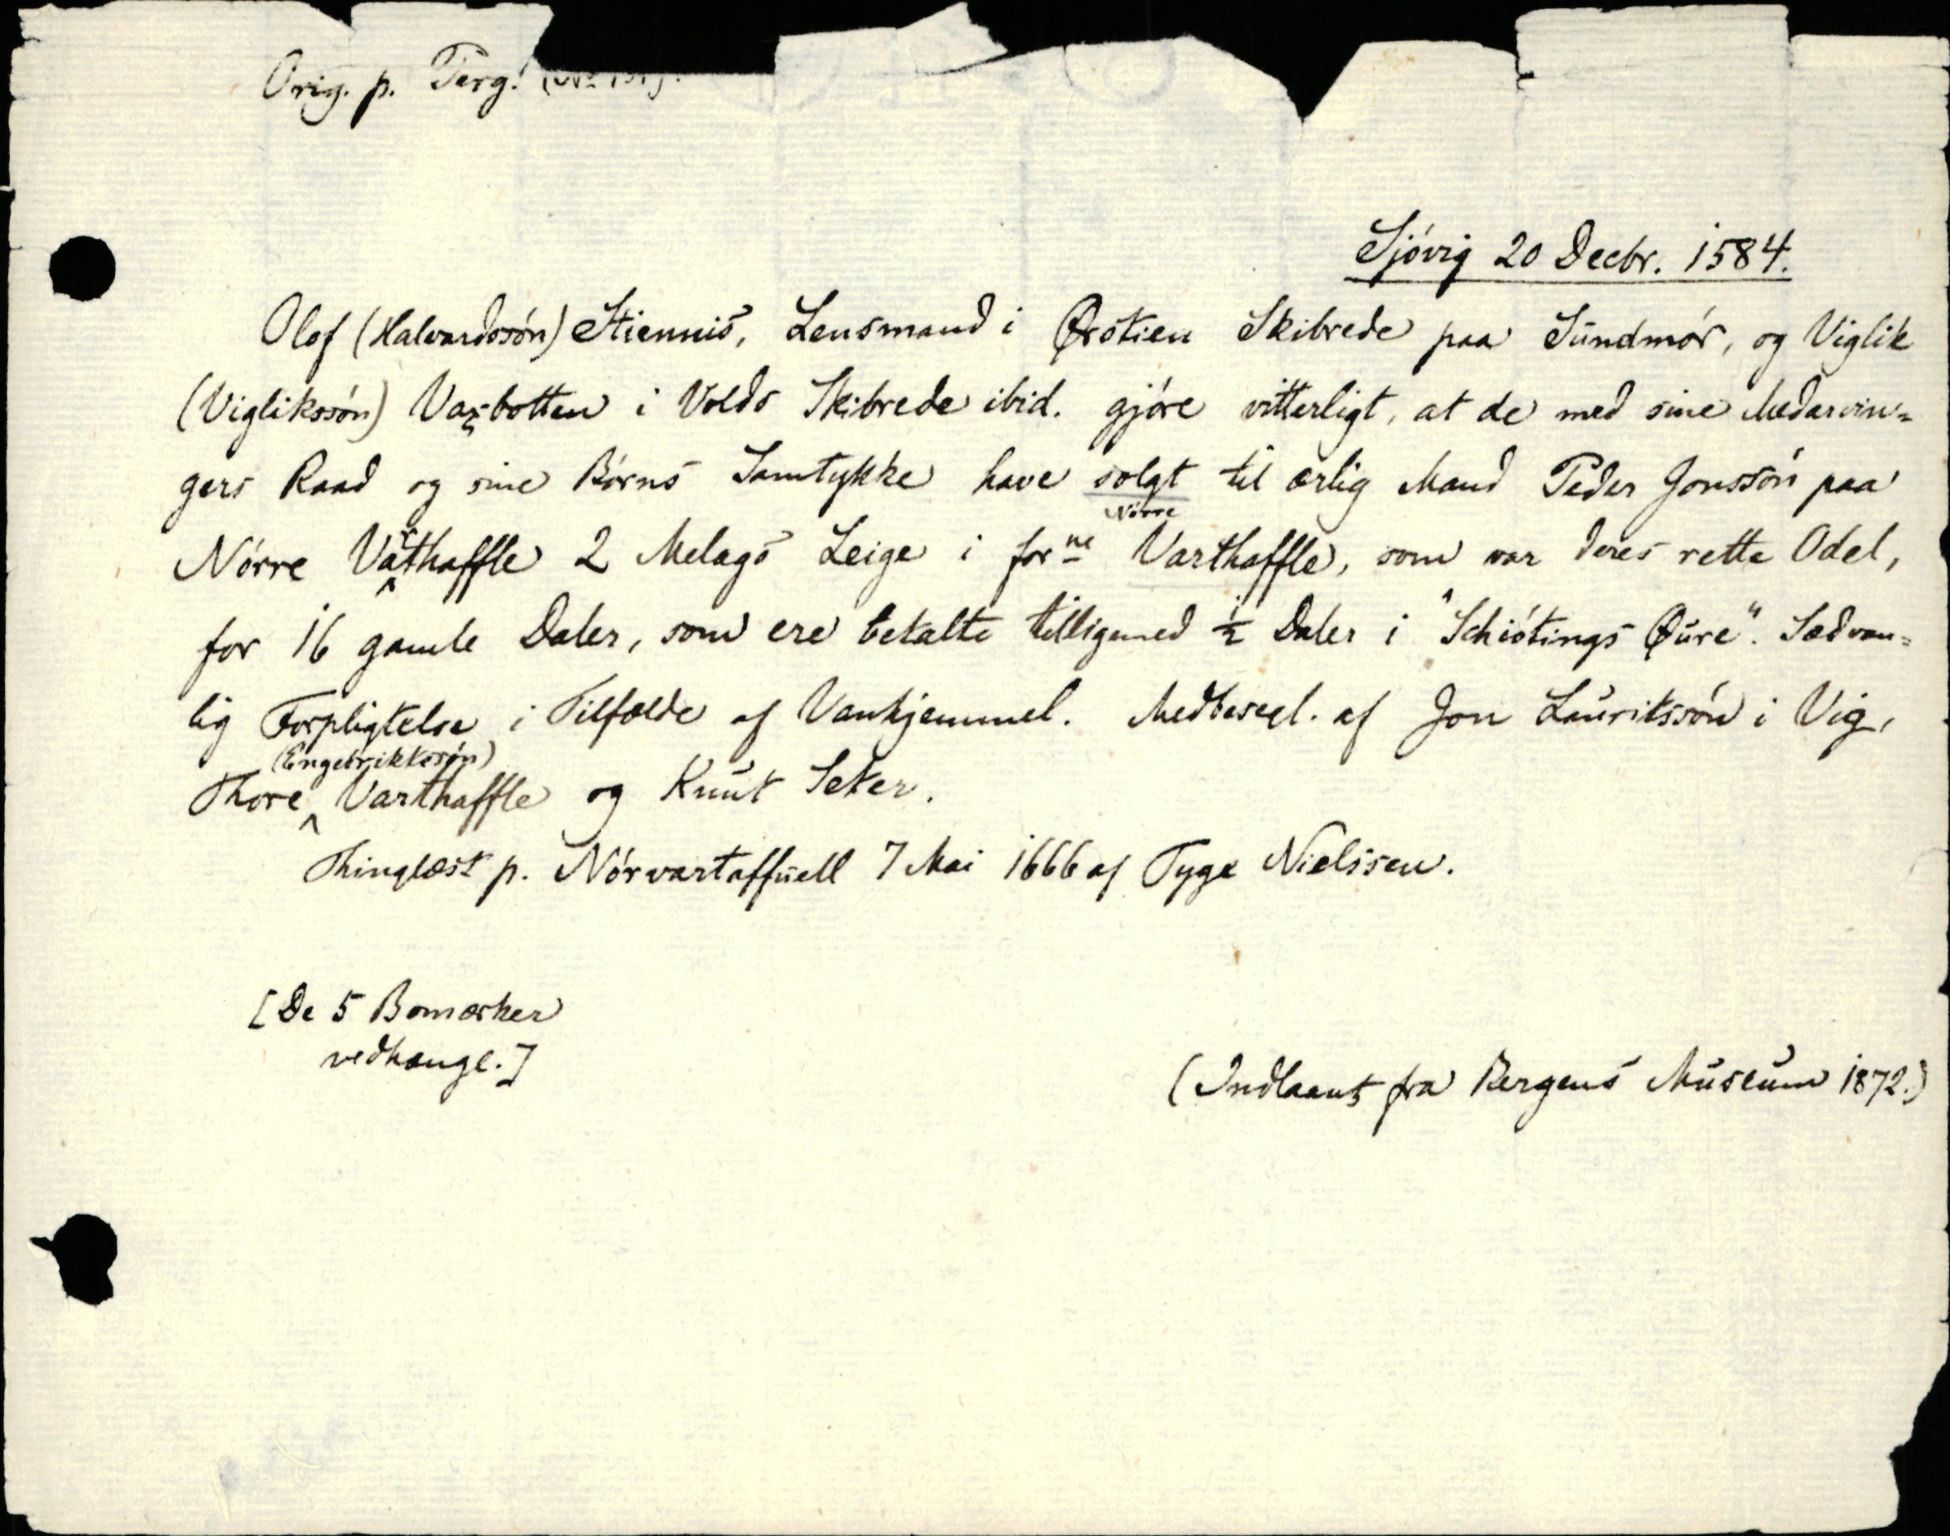 Orig. p. Perg.
Sjóvig 20 Decbr. 1584.
Olof (Halvardssón) Stiennis, Lensmand i Østien Skibrede paa Sündmór, og Viglik
(Viglikssón) Vassbotten i Volds Skibrede ibid. gjóre vitterligt, at de med sine Medarvin-
gers Raad og sine Bórns Samtykke have solgt til ærlig Mand Peder Jonssón paa
Nórre Varthaffle 2 Melags Leige i forne Nórre Varthaffle, som var deres rette Odel,
for 16 gamle Daler, som ere betalte tilligemed ½ Daler i "Schiótings Øure". Sædvan-
lig Forpligtelse i Tilfælde af Vanhjemmel. Medbesegl. af Jon Laurikssón i Vig,
Thore (Engebrikkssøn) Varthaffle og Knut Seter.
Thinglæst p. Nórvartaffuell 7 Mai 1666 af Tyge Nielssen.
[De 5 Bomærker
vedhænge.]
(Indlaant fra Bergens Museum 1872.)